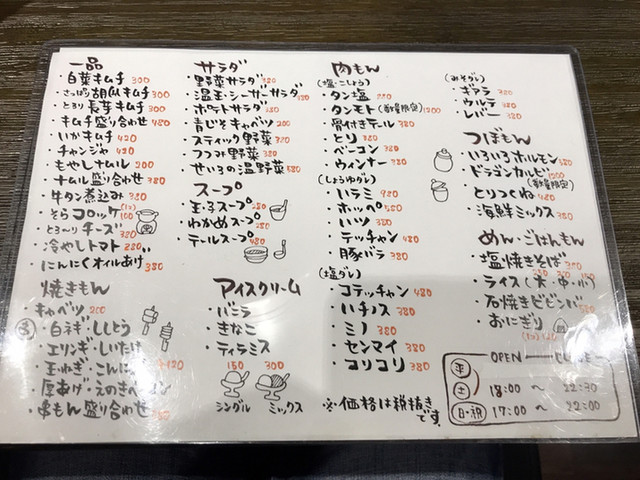 一品
・白菜キムチ 300
・さっぱり胡瓜キムチ 300
・とろり長芋キムチ 300
・キムチ盛り合わせ 480
・いかキムチ 420
・チャンジャ 420
・もやしナムル 200
・ナムル盛り合わせ 380
・牛タン煮込み 380
・そらコロッケ (1コ) 100
・とろ〜りチーズ 380
・冷やしトマト 220
・にんにくオイルあげ 380
焼きもん
・キャベツ 200
・白ネギ・ししとう
・エリンギ・しいたけ
・玉ねぎ・こんにゃく 120
・厚あげ・えのきベーコン
・串もん盛り合わせ
サラダ
・野菜サラダ
・温玉シーザーサラダ
・ポテトサラダ
・青じそキャベツ 200
・スティック野菜 380
・つつみ野菜 380
・せいろの温野菜 580
スープ
・玉子スープ 280
・わかめスープ 280
・テールスープ 480
アイスクリーム
・バニラ
・きなこ
・ティラミス
150 300
シングル ミックス
肉もん
(塩・こしょう)
・タン塩
・タンモト (数量限定) 1200
・骨付きテール 380
・とり 380
・ベーコン 380
・ウィンナー 380
(しょうゆダレ)
・ハラミ 980
・ホッペ 580
・ハツ 380
・テッチャン 480
・豚バラ 380
(塩ダレ)
・コテッチャン 480
・ハチノス 380
・ミノ 580
・センマイ 380
・コリコリ 380
※価格は税抜きです。
(みそダレ)
・ギアラ 380
・ウルテ 380
・レバー 380
つぼもん
・いろいろホルモン 580
・ドラゴンカルビ 1200
(数量限定)
・とりつくね 480
・海鮮ミックス 380
めん・ごはんもん
・塩焼きそば
・ライス (大・中・小)
・石焼きビビンバ
・おにぎり
(1コ) 120
OPEN ― CLOSE
平
土 18:00 〜 22:30
日・祝 17:00 〜 22:00